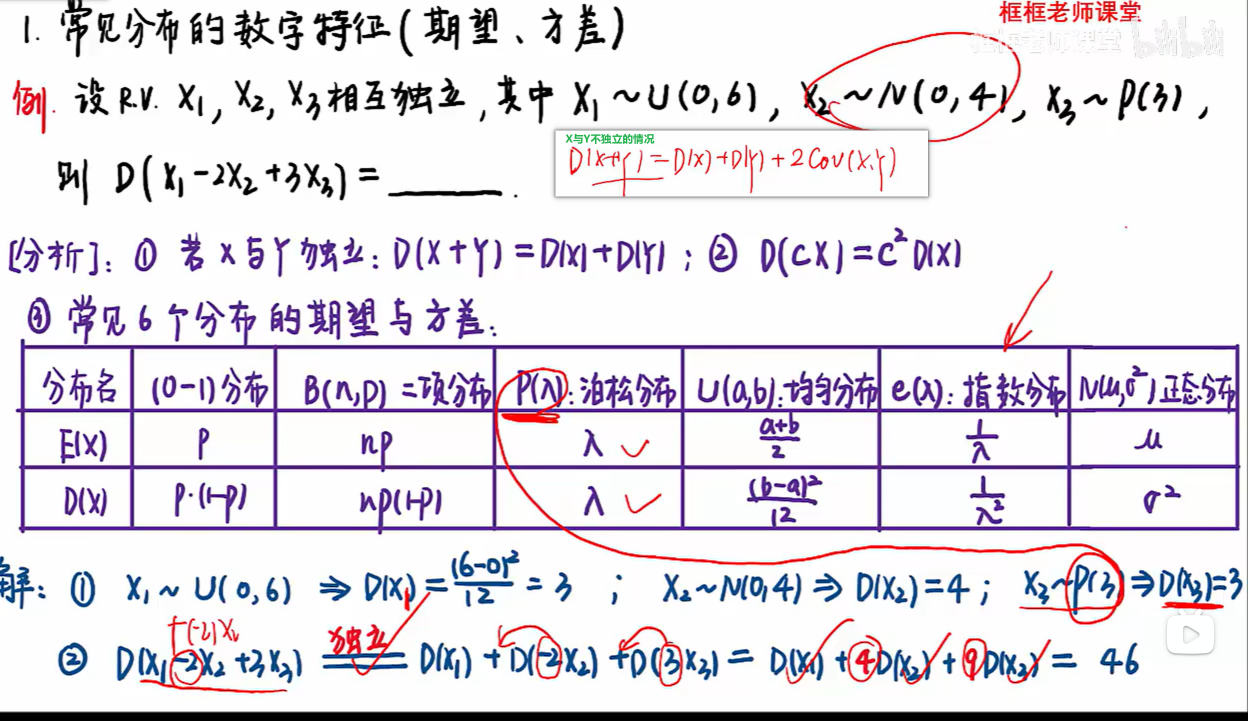 框框老师课堂
1. 常见分布的数字特征(期望、方差)
框框老师课堂 bilibili
例. 设 R.V. X₁, X₂, X₃相互独立, 其中 X₁~U(0,6), X₂~N(0,4), X₃~P(3),
X与Y不独立的情况
D(X+Y)=D(X)+D(Y)+2Cov(X,Y)
则 D(X₁-2X₂+3X₃)=______.
[分析]: ① 若X与Y独立: D(X+Y)=D(X)+D(Y); ② D(CX)=C²D(X)
③ 常见6个分布的期望与方差:
分布名 (0-1)分布 B(n,p) 二项分布 P(λ):泊松分布 U(a,b):均匀分布 e(λ):指数分布 N(μ,σ²)正态分布
E(X) P np λ (a+b)/2 1/λ μ
D(X) P·(1-P) np(1-P) λ (b-a)²/12 1/λ² σ²
解: ① X₁~U(0,6) ⇒ D(X₁)=(6-0)²/12=3; X₂~N(0,4) ⇒ D(X₂)=4; X₃~P(3) ⇒ D(X₃)=3
+(-2)X₂ 独立
② D(X₁-2X₂+3X₃) = D(X₁)+D(-2X₂)+D(3X₃) = D(X₁)+4D(X₂)+9D(X₃) = 46